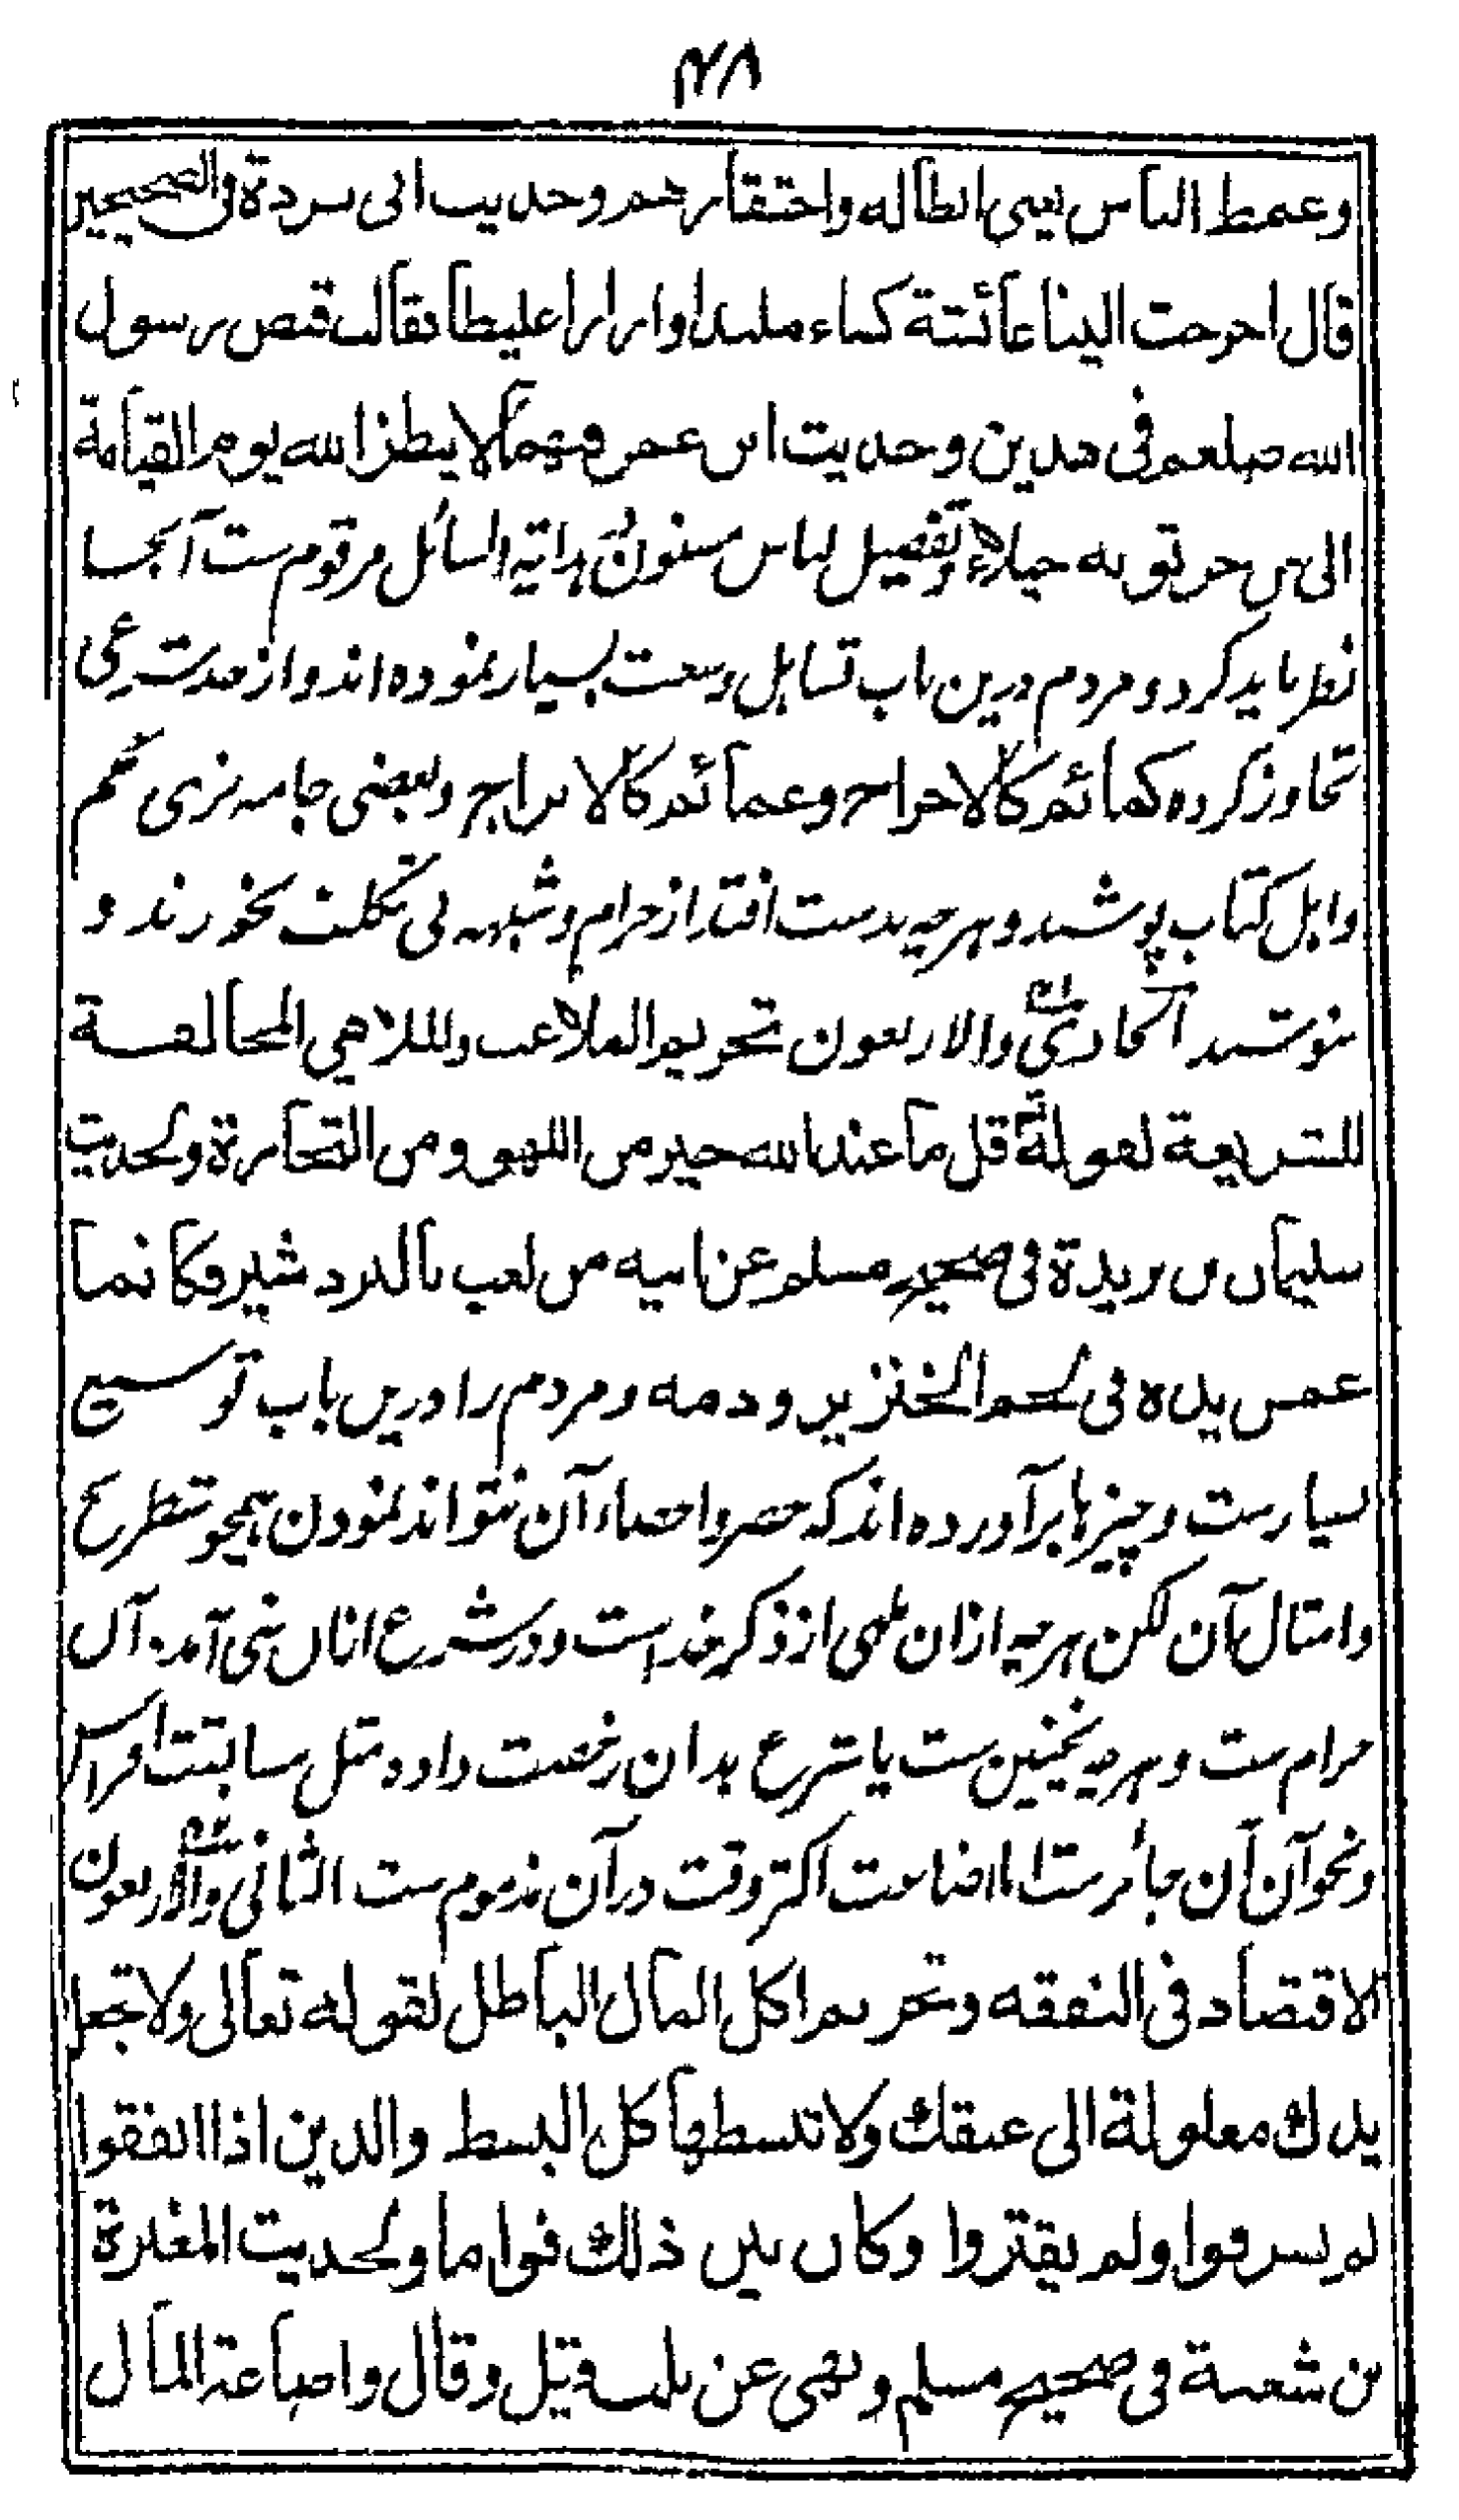 ۴۸
وغمط الناس یعنی ابطاله واحتقارهم وحدیث ابی بردة فی الصحیحین
قال اخرجت الینا عائشة کساء ملبدا وازارا غلیظا فقالت قبض رسول
الله صلعم فی هذین وحدیث ابن عمر فیهما لا ینظر الله یوم القیامة
الی من جر ثوبه خیلاء وتفصیل لباس مسنون در هدایة السائل مرقوم ست آنجا
نظر باید کرد و مردم درین باب تساهل وسعت بسیار نموده اند و از حد شرعی
تجاوز کرده کمائم کالاخراج وعمائم کالابراج وبعضی جامه بزی عجم
واهل کتاب پوشند و هرچه بدست افتد از حرام و شبهه بی تکلف بخورند و
بنوشند الحادی والاربعون تحریم الملاعب والملاهی المخالفة
للشریعة لقوله تعالی قل ما عند الله خیر من اللهو ومن التجارة ولحدیث
سلیمان بن بریدة فی صحیح مسلم عن ابیه من لعب بالنردشیر فکانما
غمس یده فی لحم الخنزیر ودمه و مردم را درین باب توسیع
بسیارست و چیزها برآورده اند که حصر واحصار آن نتواند نمودن همچو شطرنج
وامثال آن لکن هرچه ازان ملهی از ذکر خداست و در شرع اتیان نهی آمده آن
حرام ست و هرچه نچنین ست یا شرع بدان رخصت داده مثل مسابقت افراس
ونحو آن آن جائزست اما اضاعت اکثر وقت درآن مذموم ست الثانی والاربعون
الاقتصاد فی النفقه وتحریم اکل المال الباطل لقوله تعالی ولا تجعل
یدك مغلولة الی عنقك ولا تبسطها کل البسط والذین اذا انفقوا
لم یسرفوا ولم یقتروا وکان بین ذلك قواما ولحدیث المغیرة
بن شعبة فی صحیح مسلم ونهی عن ثلث قیل وقال واضاعة المال